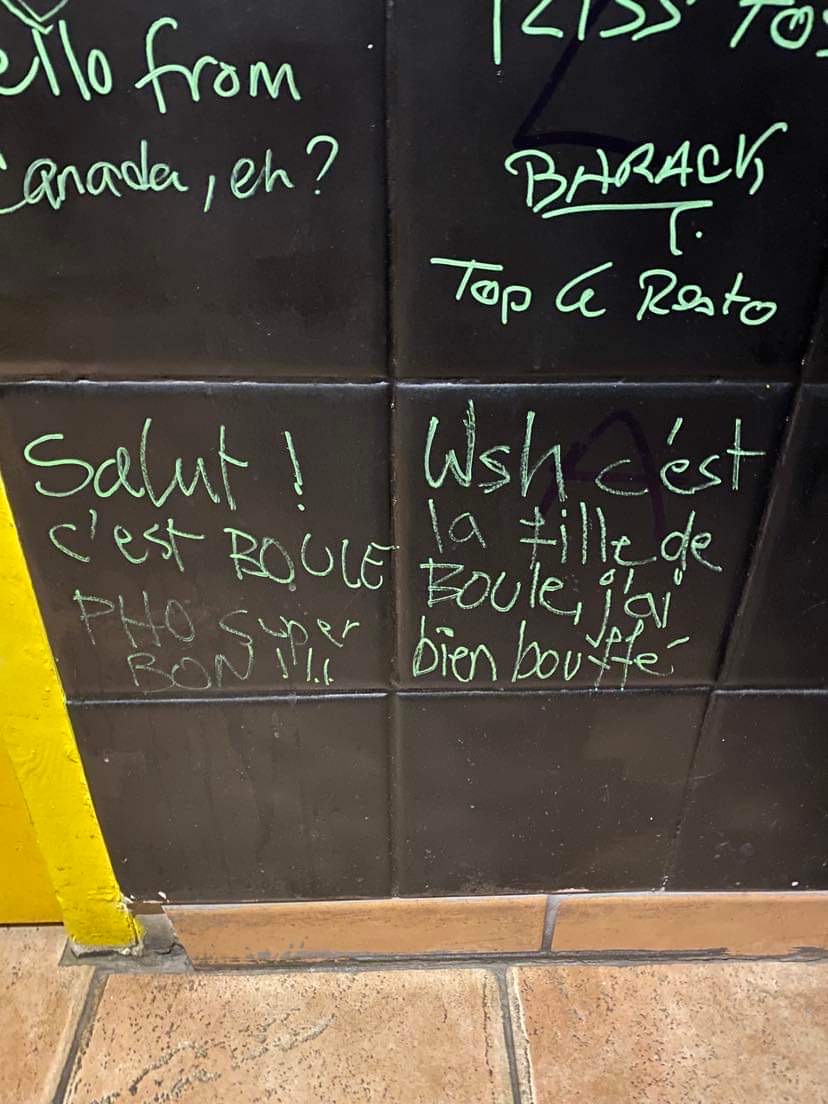 ello from
Canada, eh?
KISS TOS
BARACK
T.
Top Ce Resto
Salut !
c'est BOULE
PHO super
BON !!!!
Wsh c'est
la fille de
Boule, j'ai
bien bouffé